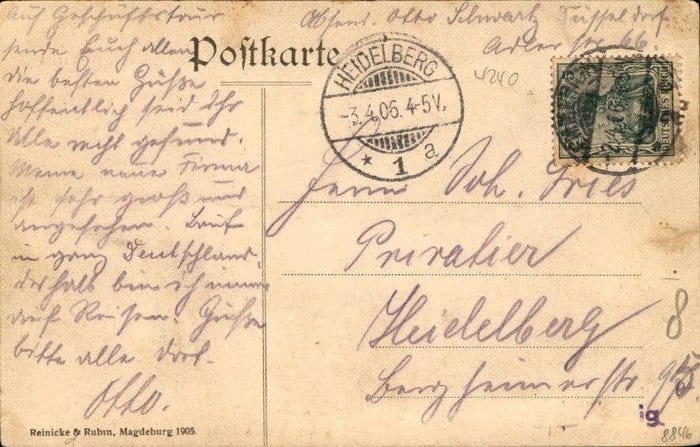 Absend. Otto Schwartz Düsseldorf
Adlerstr. 66.
Postkarte
4240
HEIDELBERG
-3.4.06. 4-5V.
* 1 a
DEUTSCHES REICH
Auf Geschäftstour
sende Euch allen
die besten Grüße
hoffentlich seid Ihr
Alle recht gesund.
Meine neue Firma
ist sehr groß und
angesehen. Lauf
in ganz Deutschland,
deshalb bin ich immer
auf Reisen. Grüße
bitte alle dort.
Otto.
Herrn Joh. Fries
Privatier
Heidelberg
Bergheimerstr.
8
ig
8846
Reinicke & Rubin, Magdeburg 1905.